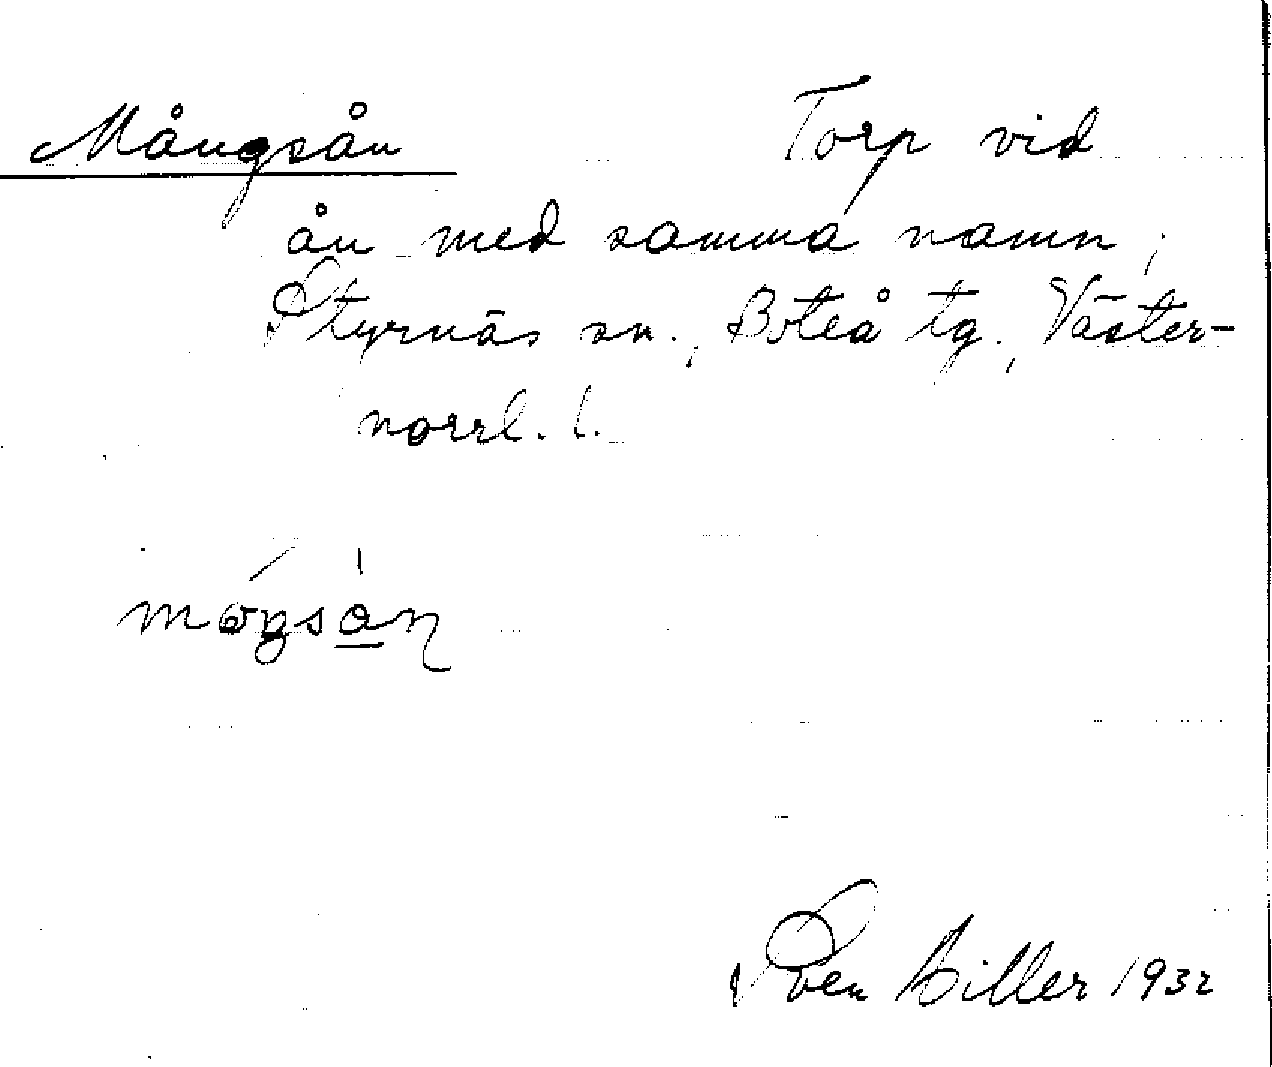 Mångsån Torp vid
ån med samma namn,
Styrnäs sn., Boteå tg., Väster-
norrl. l.
Sven Hiller 1932